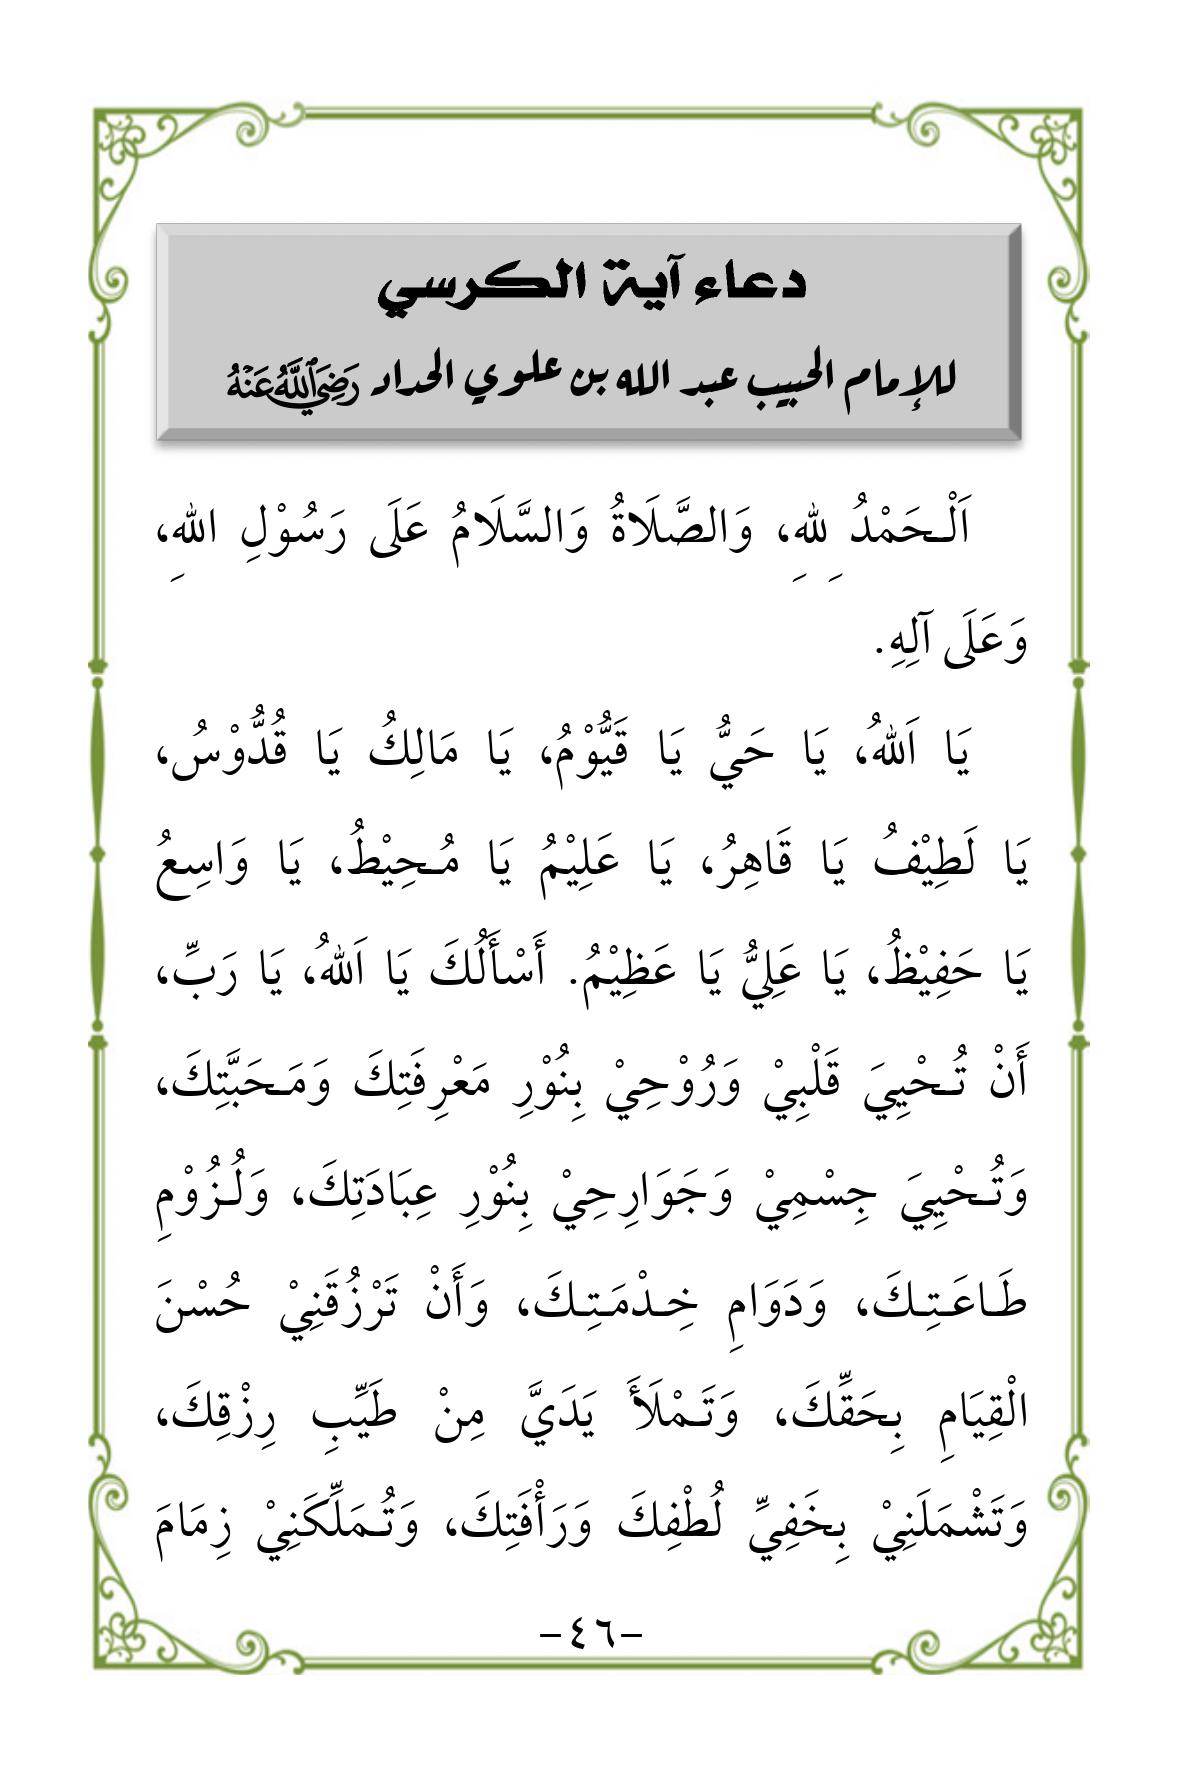 دعاء آية الكرسي
للإمام الحبيب عبد الله بن علوي الحداد رَضِيَ ٱللَّهُ عَنْهُ
اَلْـحَمْدُ لِلهِ، وَالصَّلَاةُ وَالسَّلَامُ عَلَى رَسُوْلِ اللهِ،
وَعَلَى آلِهِ.
يَا اَللهُ، يَا حَيُّ يَا قَيُّوْمُ، يَا مَالِكُ يَا قُدُّوْسُ،
يَا لَطِيْفُ يَا قَاهِرُ، يَا عَلِيْمُ يَا مُـحِيْطُ، يَا وَاسِعُ
يَا حَفِيْظُ، يَا عَلِيُّ يَا عَظِيْمُ. أَسْأَلُكَ يَا اَللهُ، يَا رَبِّ،
أَنْ تُـحْيِيَ قَلْبِيْ وَرُوْحِيْ بِنُوْرِ مَعْرِفَتِكَ وَمَـحَبَّتِكَ،
وَتُـحْيِيَ جِسْمِيْ وَجَوَارِحِيْ بِنُوْرِ عِبَادَتِكَ، وَلُـزُوْمِ
طَـاعَـتِـكَ، وَدَوَامِ خِـدْمَـتِـكَ، وَأَنْ تَرْزُقَنِيْ حُسْنَ
الْقِيَامِ بِـحَقِّكَ، وَتَـمْلَأَ يَدَيَّ مِنْ طَيِّبِ رِزْقِكَ،
وَتَشْمَلَنِيْ بِـخَفِيِّ لُطْفِكَ وَرَأْفَتِكَ، وَتُـمَلِّكَنِيْ زِمَامَ
-٤٦-